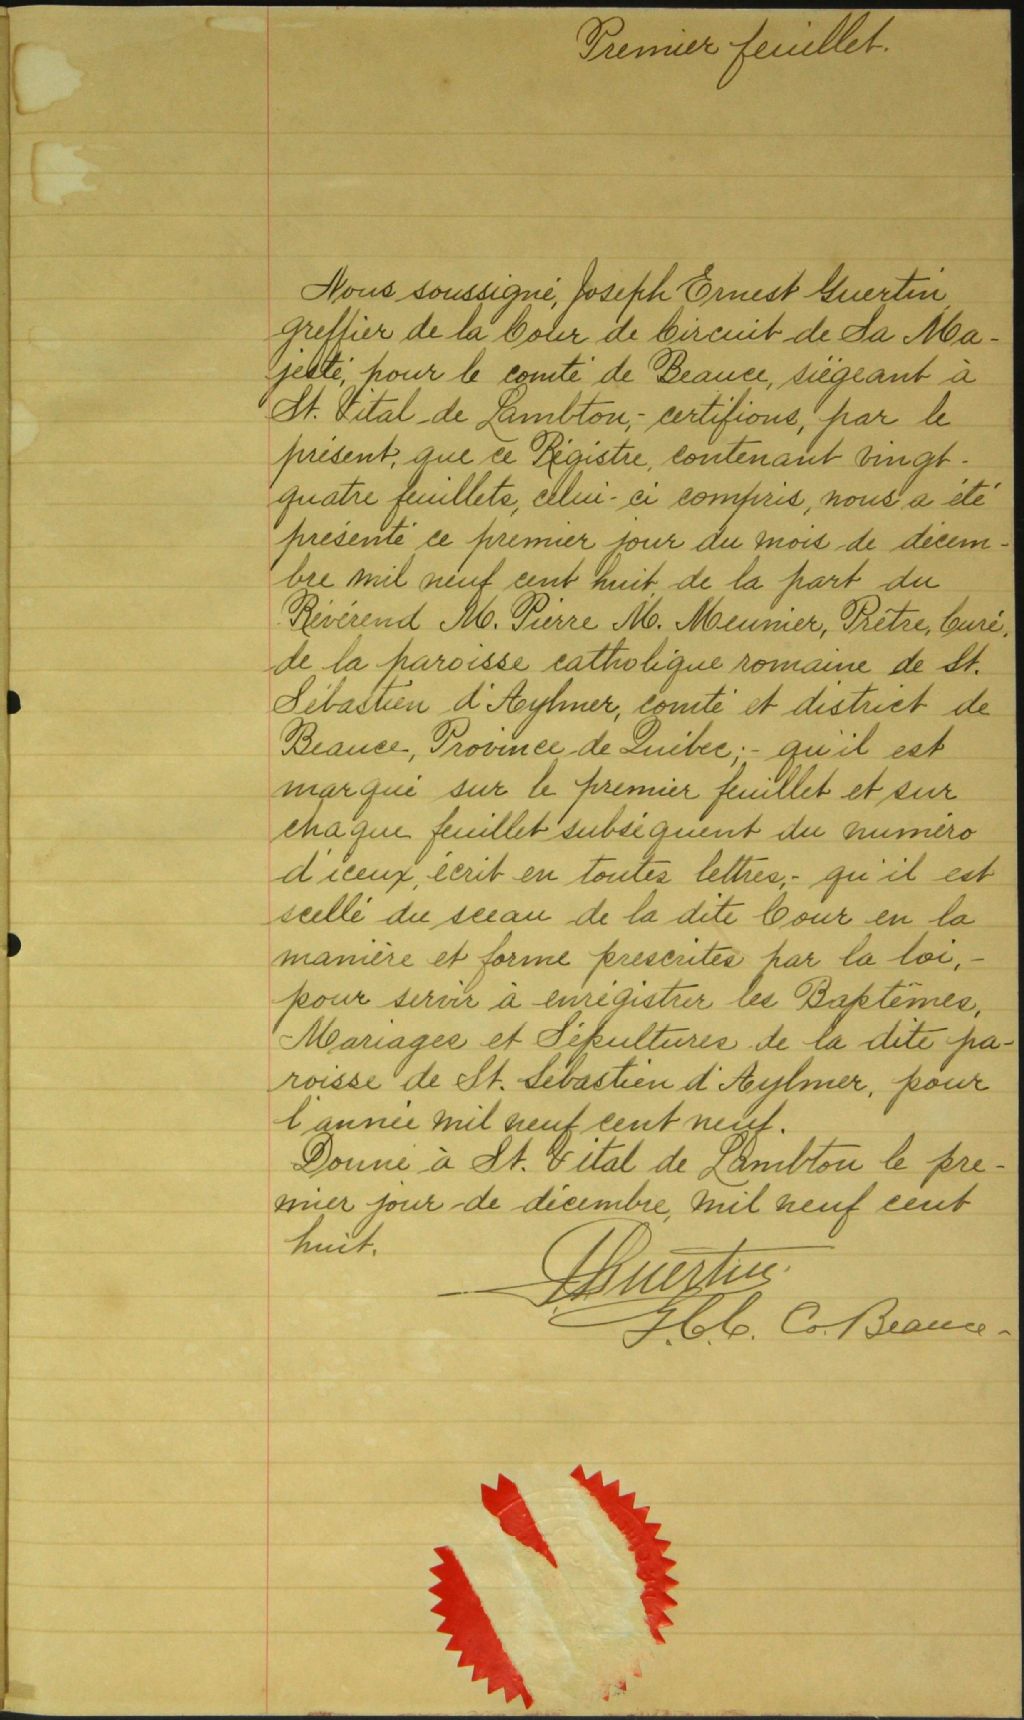 Premier feuillet.
Nous soussigné, Joseph Ernest Guertin,
greffier de la Cour de Circuit de Sa Ma-
jesté, pour le comté de Beauce, siégeant à
St. Vital de Lambton,- certifions, par le
présent, que ce Régistre, contenant vingt-
quatre feuillets, celui-ci compris, nous a été
présenté ce premier jour du mois de décem-
bre mil neuf cent huit, de la part du
Révérend M. Pierre M. Meunier, Prêtre, Curé,
de la paroisse catholique romaine de St.
Sébastien d'Aylmer, comté et district de
Beauce, Province de Québec;- qu'il est
marqué sur le premier feuillet et sur
chaque feuillet subséquent du numéro
d'iceux, écrit en toutes lettres,- qu'il est
scellé du sceau de la dite Cour en la
manière et forme prescrites par la loi,-
pour servir à enrégistrer les Baptêmes,
Mariages et Sépultures de la dite pa-
roisse de St. Sébastien d'Aylmer, pour
l'année mil neuf cent neuf.
Donné à St. Vital de Lambton le pre-
mier jour de décembre, mil neuf cent
huit.
Guertin
G.C.C. Co. Beauce-